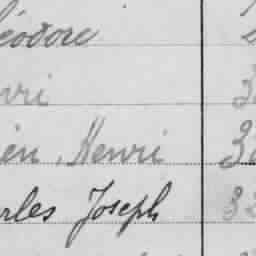 éodore
nri
ien, Henri
rles Joseph 3